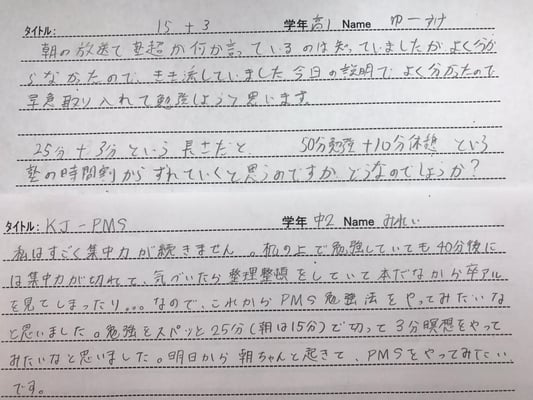 タイトル: 15+3 学年 高1 Name ゆーすけ
朝の放送で塾超が何か言っているのは知っていましたが、よく分か
らなかったので、きき流していました。今日の説明でよく分かったので
早急取り入れて勉強しようと思います。
25分+3分という長さだと、 50分勉強+10分休憩 という
塾の時間割からずれていくと思うのですが、どうなのでしょうか?
タイトル: KJ-PMS 学年 中2 Name みれい
私はすごく集中力が続きません。机の上で勉強していても40分後に
は集中力が切れて、気づいたら整理整頓をしていて本だなから卒アル
を見てしまったり。。。なので、これからPMS勉強法をやってみたいな
と思いました。勉強をスパッと25分(朝は15分)で切って3分瞑想をやって
みたいなと思いました。明日から朝ちゃんと起きて、PMSをやってみたい
です。